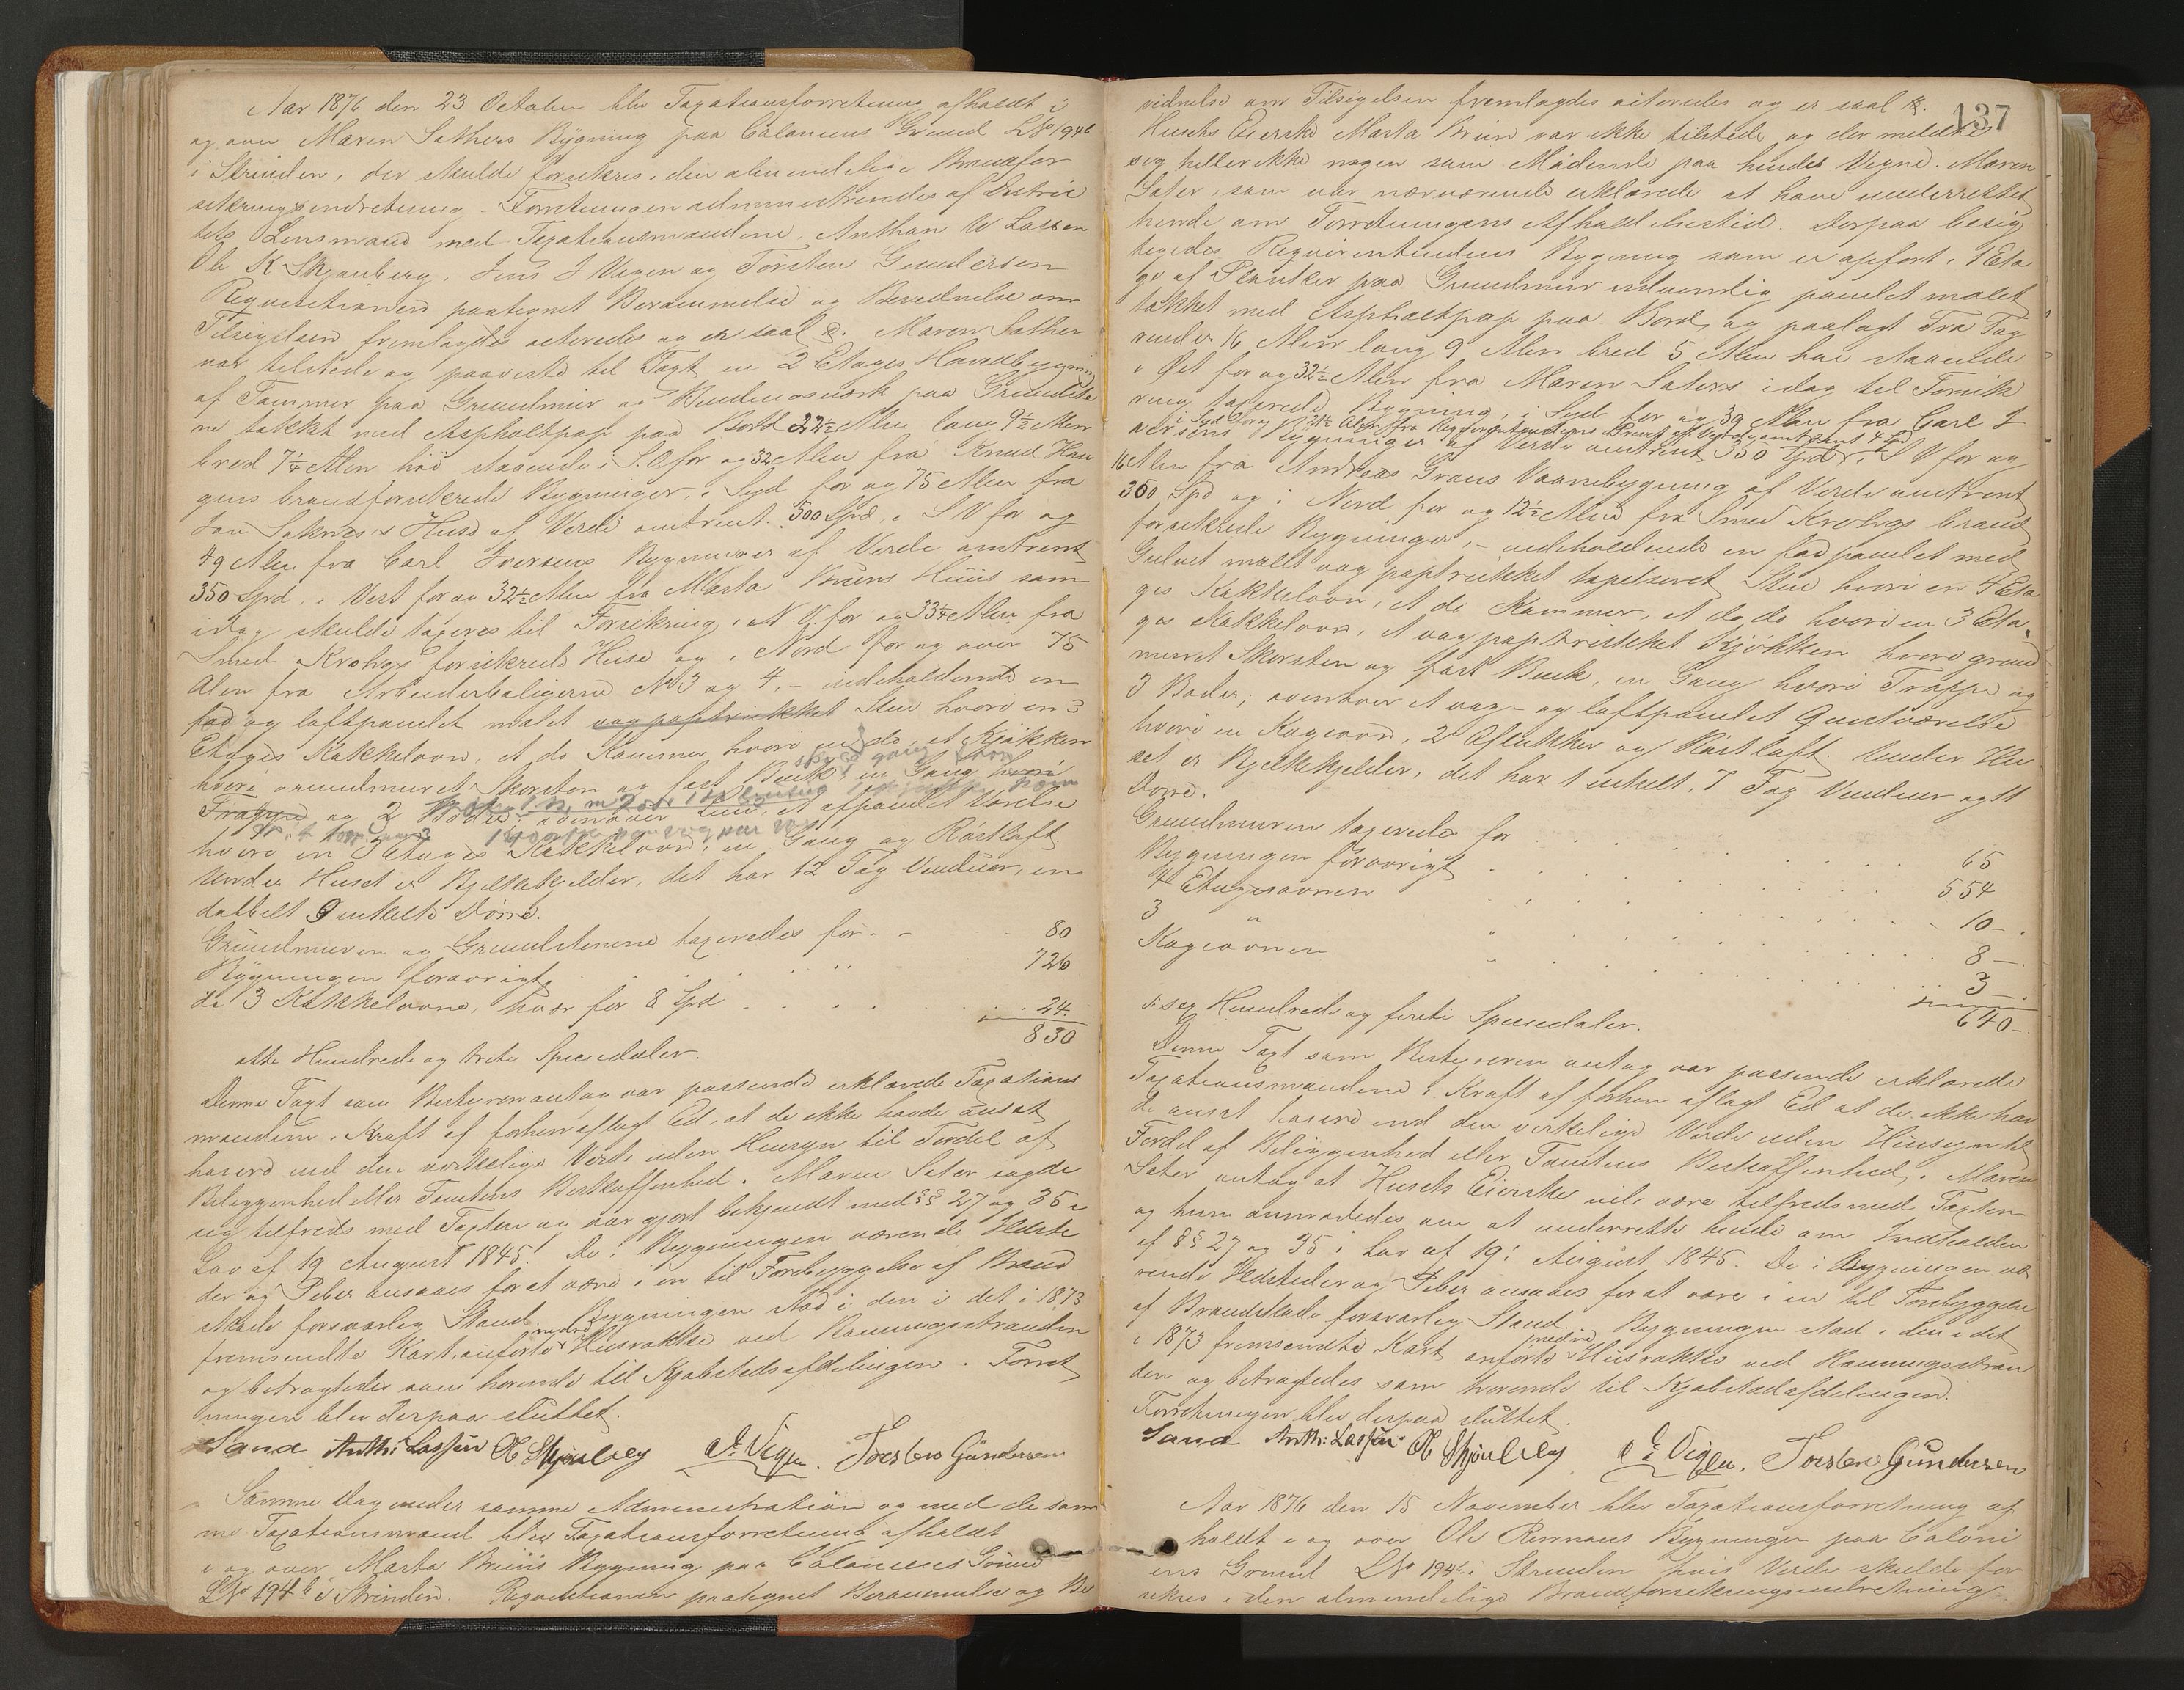 Aar 1876 den 23 October blev Taxationsforretning afholdt i
og over Maren Sæthers Bygning paa Caloniens Grund LNo 194b
i Strinden, der skulde forsikres i den almindelige Brandfor
sikringsindretning. Forretningen administreredes af Distric
tets Lensmand med Taxationsmændene Anthon W Lassen
Ole K Skjønberg, Jens J Vigen og Torsten Gundersen
Requisitionen paategnet Berammelse og Bevidnelse om
Tilsigelsen fremlagdes acteredes og er saal. Maren Sæther
var tilstede og paaviste til Taxt en 2 Etages Hovedbygning
af Tømmer paa Grundmur og Bindingsværk paa Grundste
ne tækket med Asphaltpap paa Bord 22½ Alen lang 9½ Alen
bred 7¼ Alen høi staaende i S.O for og 32 Alen fra Knud Hau
gens brandforsikrede Bygninger, i Syd for og 75 Alen fra
Jon Saknes's Huse af Verdi omtrent 500 Spd, i S V for og
49 Alen fra Carl Iversens Bygninger af Verdi omtrent
350 Spd, i Vest for og 32½ Alen fra Marta Bruns Huus som
idag skulde taxeres til Forsikring, i N.V. for og 33¼ Alen fra
Smed Krohgs forsikrede Huse og i Nord for og over 75
Alen fra Arbeiderboligerne No 3 og 4, - indeholdende en
fad og loftpanelet malet vægpaptrukket Stue hvori en 3
Etages Kakkelovn, et do Kammer, hvori en do, et Kjøkken
hvori grundmuret Skorsten og fast Bænk, en Gang hvori
Trappe og 2 Boder; ovenover Stue, et afpanelet Værelse
hvori en 3 Etages Kakkelovn, en Gang og Røstloft.
Under Huset er Bjelkekjelder, det har 12 Fag Vinduer, en
dobbelt 9 enkelte Dørre.
Grundmuren og Grundstenene taxeredes for . - 80
Bygningen forøvrigt . . . 726
de 3 Kakkelovne, hver for 8 Spd . . . 24.
830
otte Hundrede og treti Speciedaler.
Denne Taxt som Bestyreren antog var passende erklærede Taxations
mændene i Kraft af forhen aflagt Ed, at de ikke havde ansat
høiere end den virkelige Verdi uden Hensyn til Fordel af
Beliggenhed eller Tomtens Beskaffenhed. Maren Sæter sagde
sig tilfreds med Taxten og var gjort bekjendt med §§ 27 og 35 i
Lov af 19 August 1845. De i Bygningen værende Ildste
der og Piber ansaaes for at være i en til Forebyggelse af Brand
skade forsvarlig Stand. Bygningen stod i den i det i 1873
fremsendte Kart anførte nedre Husrække ved Ravnungsstranden
og betragtedes som hørende til Kjøbstadsafdelingen. Forret
ningen blev derpaa sluttet.
Sand Anth: Lassen O K Skjønberg J. J. Vigen. Torsten Gundersen
Samme Dag under samme Administration og med de sam
me Taxationsmænd blev Taxationsforretning afholdt
i og over Marta Bruns Bygning paa Caloniens Grund
LNo 194b i Strinden. Requisitionen paategnet Berammelse og Be
137
vidnelse om Tilsigelsen fremlagdes acteredes og er saal.
Husets Eierske Marta Brun var ikke tilstede og der meldte
sig heller ikke nogen som Mødende paa hendes Vegne. Maren
Sæter, som var nærværende erklærede at have underrettet
hende om Forretningens Afholdelsestid. Derpaa besig
tigedes Requirentindens Bygning som er opført i 1 Eta
ge af Planker paa Grundmur udvendig panelet malet
tækket med Asphaltpap paa Bord og paalagt Træ Tag
rundt 16 Alen lang 9 Alen bred 5 Alen høi staaende
i Øst for og 32½ Alen fra Maren Sæters idag til Forsik
ring taxerede Bygning, i Syd for og 39 Alen fra Carl I
i Syd for og 21½ Alen fra Requirentindens Privet af Verdi omtrent 4 Spd
versens Bygninger af Verdi omtrent 350 Spd, i S V for og
16 Alen fra Andreas Grans Vaanebygning af Verdi omtrent
300 Spd og i Nord for og 12½ Alen fra Smed Krohgs brand
forsikrede Bygninger, - indeholdende en fadpanelet med
Gulvet malt vægpaptrukket tapetseret Stue hvori en 4 Eta
ges Kakkelovn, et do Kammer, et do do hvori en 3 Eta
ges Kakkelovn, et vægpaptrukket Kjøkken hvori grund
muret Skorsten og fast Bænk, en Gang hvori Trappe og
3 Boder; ovenover et væg- og loftpanelet Qvistværelse
hvori en Kogeovn, 2 Aflukker og Røstloft. Under Hu
set er Bjelkekjelder, det har 1 enkelt, 7 Fag Vinduer og 11
Dørre.
Grundmuren taxeredes for . . . 65
Bygningen forøvrigt . . . 554
4 Etagesovnen . . . 10-.
3 " . . . 8-.
Kogeovnen " . . . 3-.
640-.
er sex Hundrede og firti Speciedaler.
Denne Taxt som Bestyreren antog var passende erklærede
Taxationsmændene i Kraft af forhen aflagt Ed at de ikke hav
de ansat høiere end den virkelige Verdi uden Hensyn til
Fordel af Beliggenhed eller Tomtens Beskaffenhed. Maren
Sæter antog at Husets Eierske vil være tilfreds med Taxten
og hun anmodedes om at underrette hende om Indholdet
af §§ 27 og 35 i Lov af 19. August 1845. De i Bygningen væ
rende Ildsteder og Piber ansaaes for at være i en til Forebyggelse
af Brandskade forsvarlig Stand. Bygningen stod i den i det
i 1873 fremsendte Kart anførte nedre Husrække ved Ravnungsstran
den og betragtedes som hørende til Kjøbstadafdelingen.
Forretningen blev derpaa sluttet.
Sand Anth: Lassen O K Skjønberg J. J. Vigen. Torsten Gundersen
Aar 1876 den 15 November blev Taxationsforretning af
holdt i og over Ole Rennans Bygninger paa Caloni
ens Grund LNo 194b i Strinden hvis Verdi skulde for
sikres i den almindelige Brandforsikringsindretning